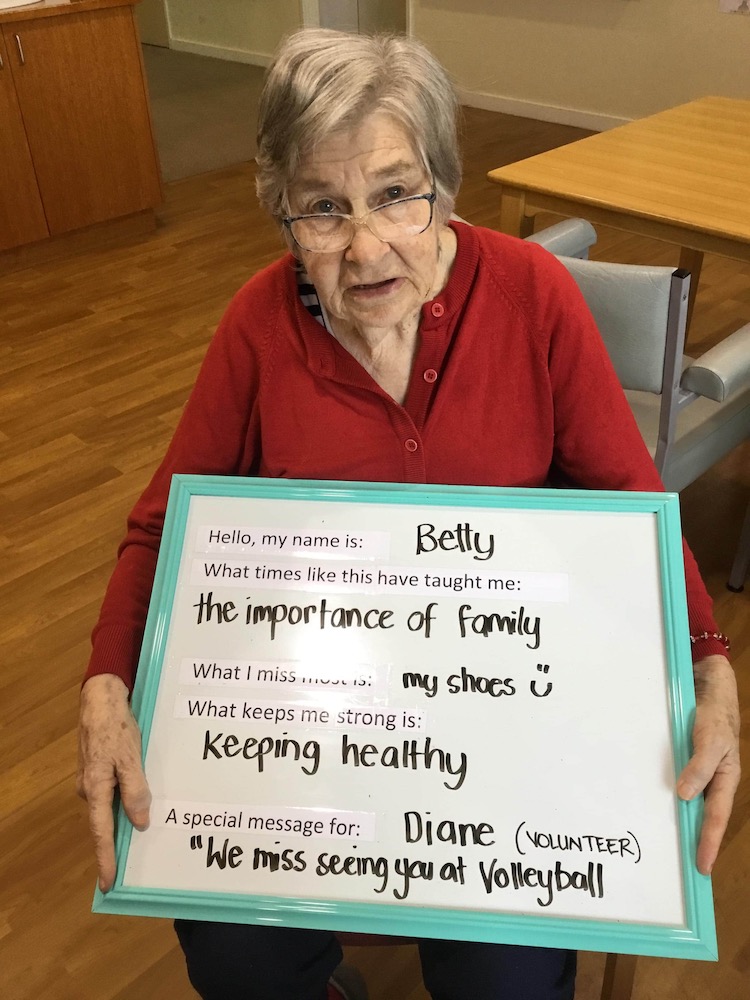 Hello, my name is: Betty
What times like this have taught me:
the importance of family
What I miss most is: my shoes
What keeps me strong is:
Keeping healthy
A special message for: Diane (VOLUNTEER)
"We miss seeing you at Volleyball